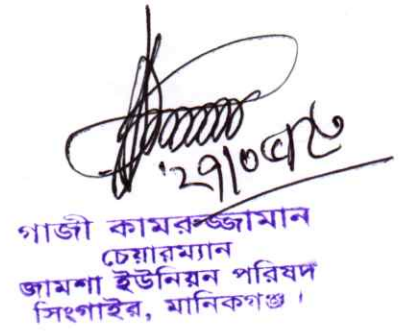 গাজী কামরুজ্জামান
চেয়ারম্যান
জামশা ইউনিয়ন পরিষদ
সিংগাইর, মানিকগঞ্জ।